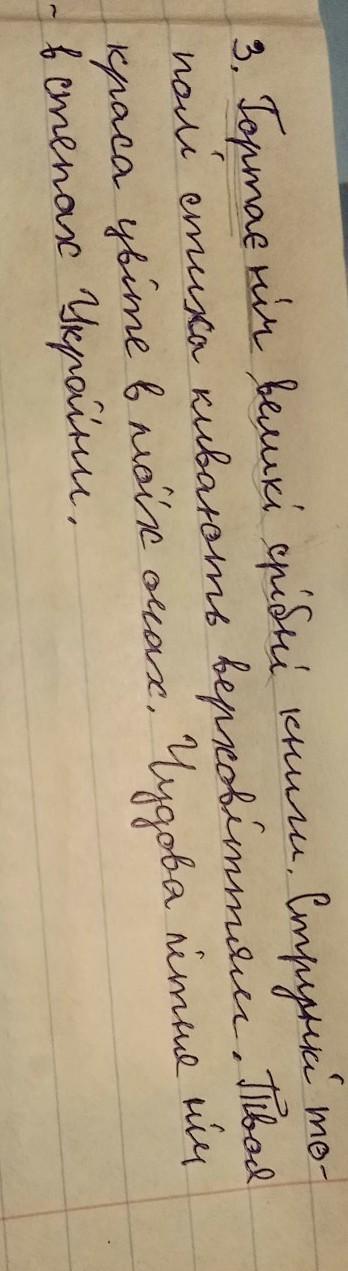 3. Гортає ніч великі срібні книги. Стрункі то-
полі стиха кивають верховіттям. Твоя
краса цвіте в моїх очах. Чудова літня ніч
в степах України.